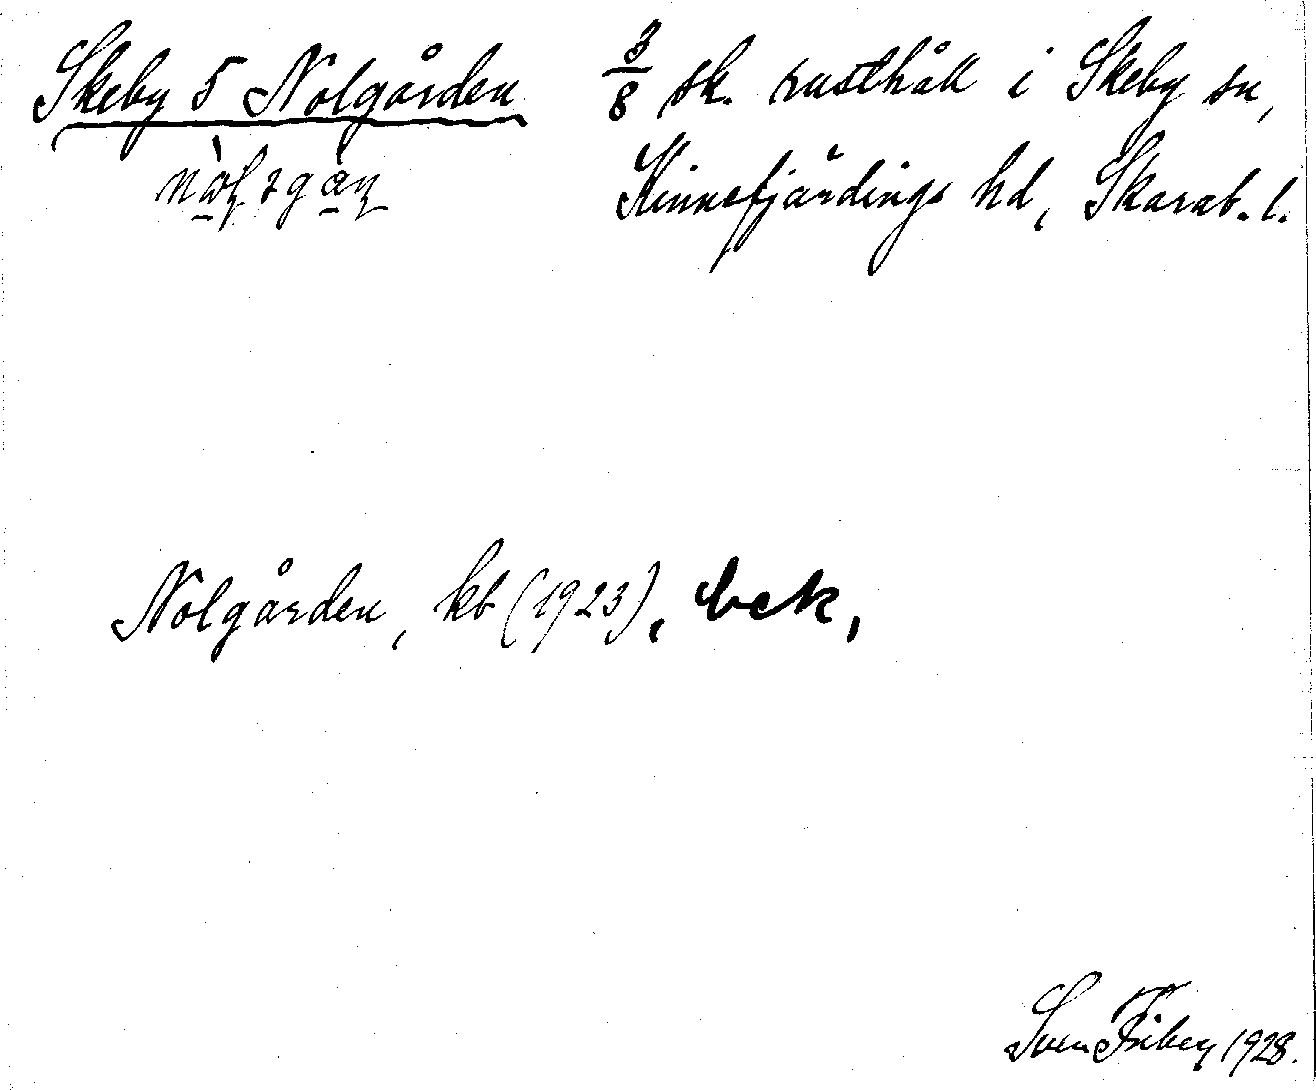 Skeby 5 Nolgården
3/8 sk. rusthåll i Skeby sn,
Kinnefjärdings hd, Skarab. l.
Nolgården, kb (1923), bek,
Sven Friberg 1928.